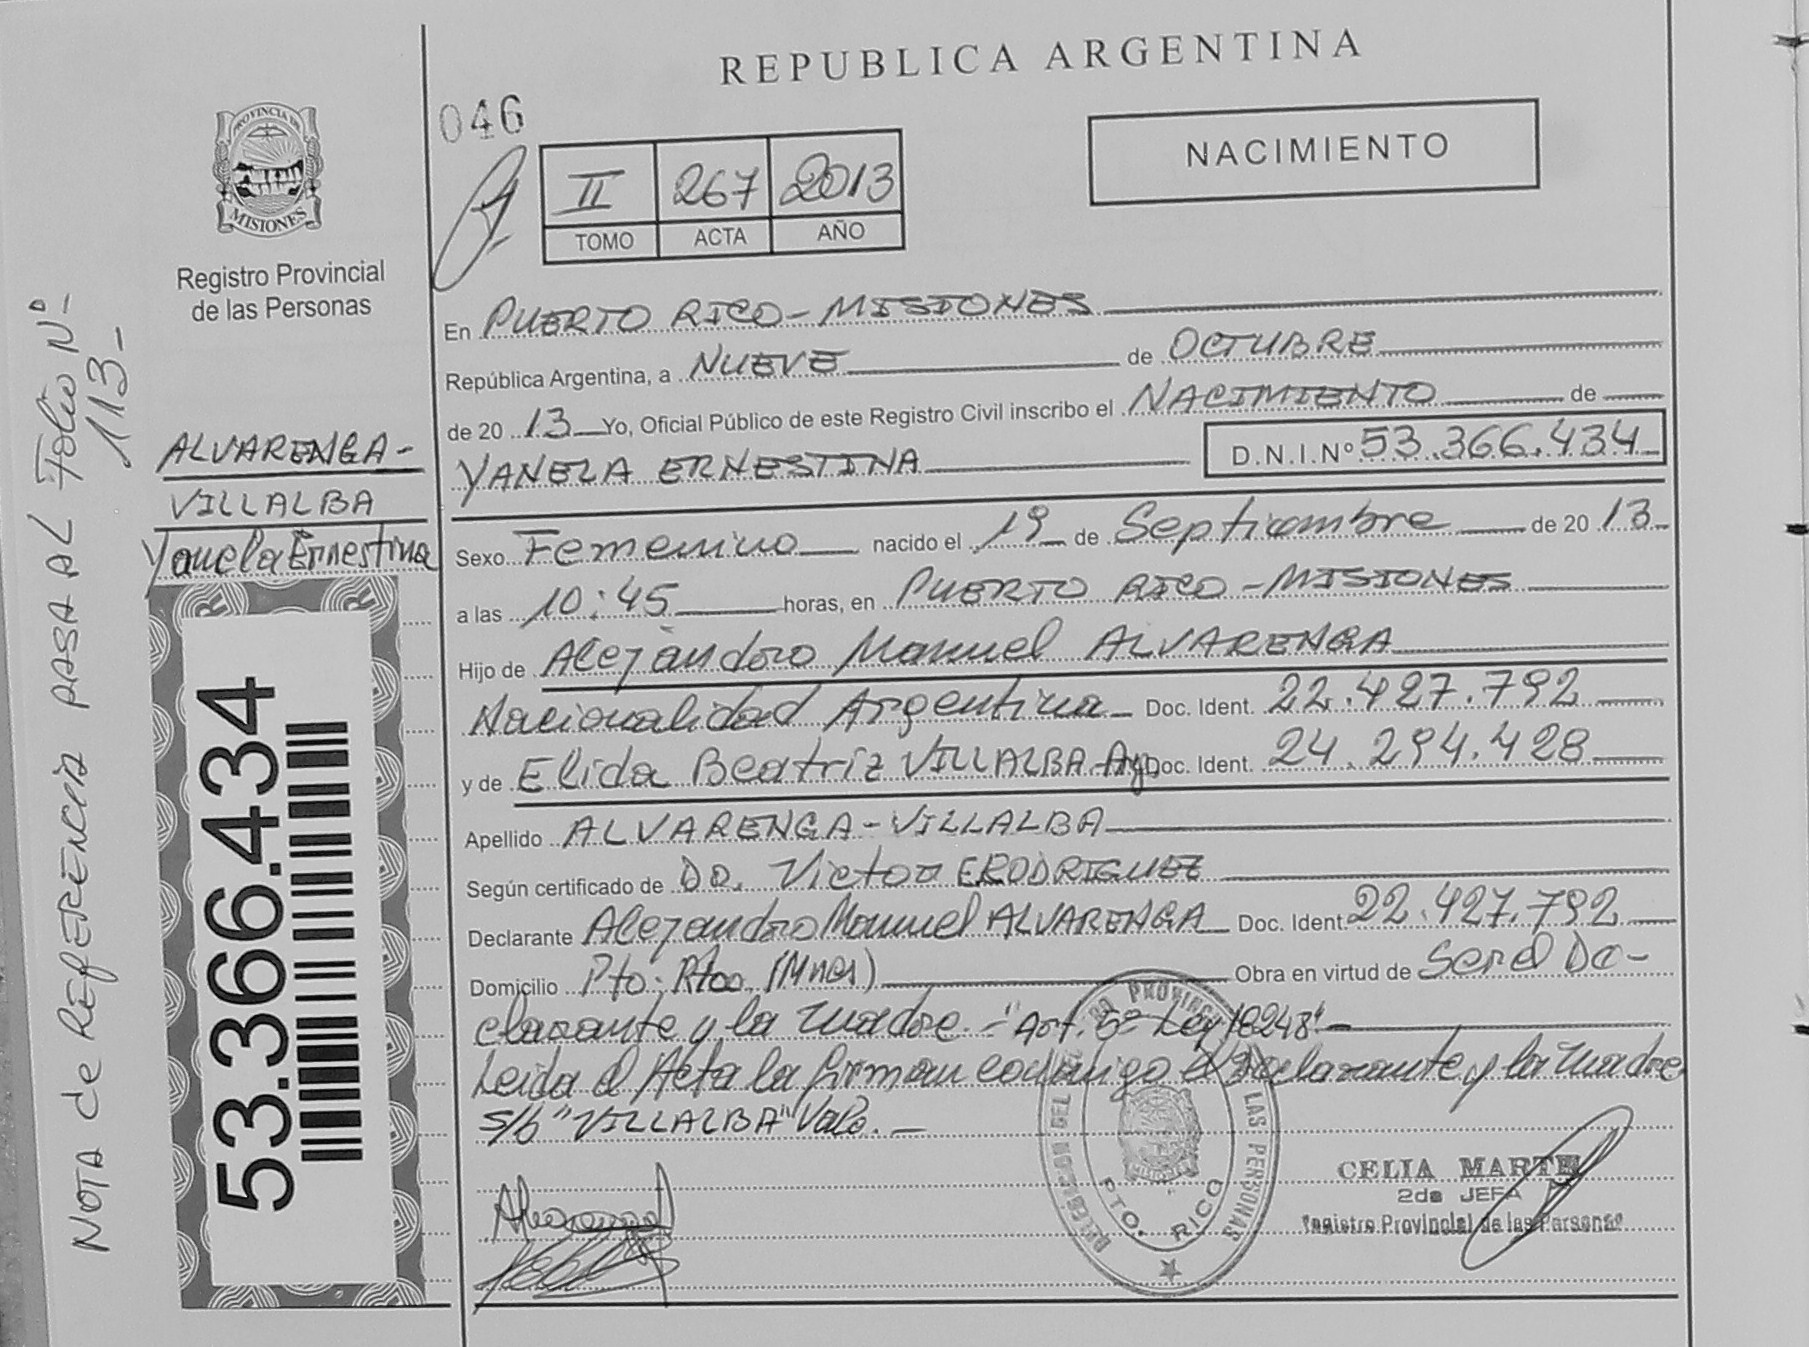 REPUBLICA ARGENTINA
046
NACIMIENTO
II 267 2013
TOMO ACTA AÑO
PROVINCIA DE
MISIONES
Registro Provincial
de las Personas
En PUERTO RICO - MISIONES
República Argentina, a NUEVE de OCTUBRE
de 20 13 Yo, Oficial Público de este Registro Civil inscribo el NACIMIENTO de
YANELA ERNESTINA D.N.I.Nº 53.366.434
ALVARENGA -
VILLALBA
Yanela Ernestina
53.366.434
NOTA de REFERENCIA PASA AL Folio Nº -
113 -
Sexo Femenino nacido el 19 de Septiembre de 20 13
a las 10:45 horas, en PUERTO RICO - MISIONES
Hijo de Alejandro Manuel ALVARENGA
Nacionalidad Argentina Doc. Ident. 22.427.792
y de Elida Beatriz VILLALBA - Doc. Ident. 24.294.428
Apellido ALVARENGA - VILLALBA
Según certificado de Do. Victor E RODRIGUEZ
Declarante Alejandro Manuel ALVARENGA Doc. Ident. 22.427.792
Domicilio Pto. Rico (Mnes) Obra en virtud de Ser el De-
clarante y la madre - "Art. 5º Ley 18248" -
Leida el Acta la firman conmigo el declarante y la madre
s/b "VILLALBA" Vale. -
PTO. RICO
LAS PERSONAS
CELIA MARTE
2da JEFA
Registro Provincial de las Personas